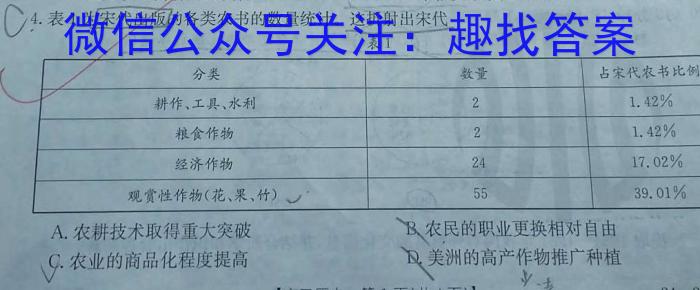 C.
4. 表1为宋代出版的各类农书的数量统计。这折射出宋代
微信公众号关注：趣找答案
表1
分类 数量 占宋代农书比例
耕作、工具、水利 2 1.42%
粮食作物 2 1.42%
经济作物 24 17.02%
观赏性作物(花、果、竹) 55 39.01%
A. 农耕技术取得重大突破 B. 农民的职业更换相对自由
C. 农业的商品化程度提高 D. 美洲的高产作物推广种植